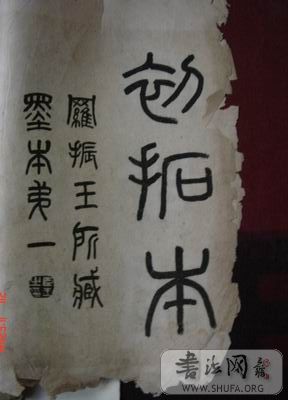 初拓本
羅振玉所藏
墨本弟一
書法网
WWW.SHUFA.ORG